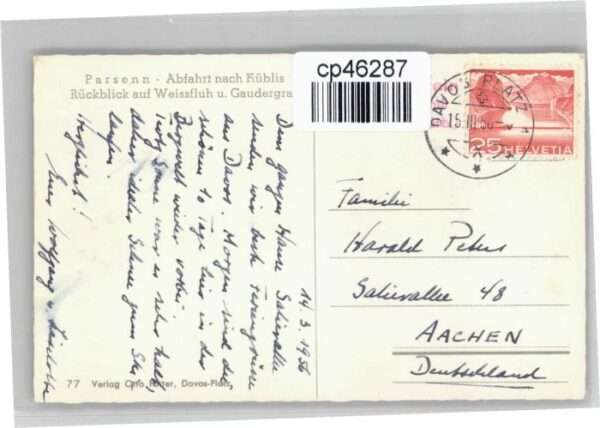 Parsenn - Abfahrt nach Küblis
Rückblick auf Weissfluh u. Gaudergra
cp46287
DAVOS PLATZ 1
15.III.56
25 HELVETIA
14.3.1956
Dem ganzen Hause Salierallee
senden wir beste Feriengrüsse
aus Davos. Morgen sind die
schönen 10 Tage hier in der
Bergwelt wieder vorbei.
Trotz Sonne war es sehr kalt,
daher idealer Schnee zum Ski
laufen.
Herzlichst!
Eure Wolfgang u. Liselotte
Familie
Harald Peters
Salierallee 48
AACHEN
Deutschland
77 Verlag Otto Furter, Davos-Platz